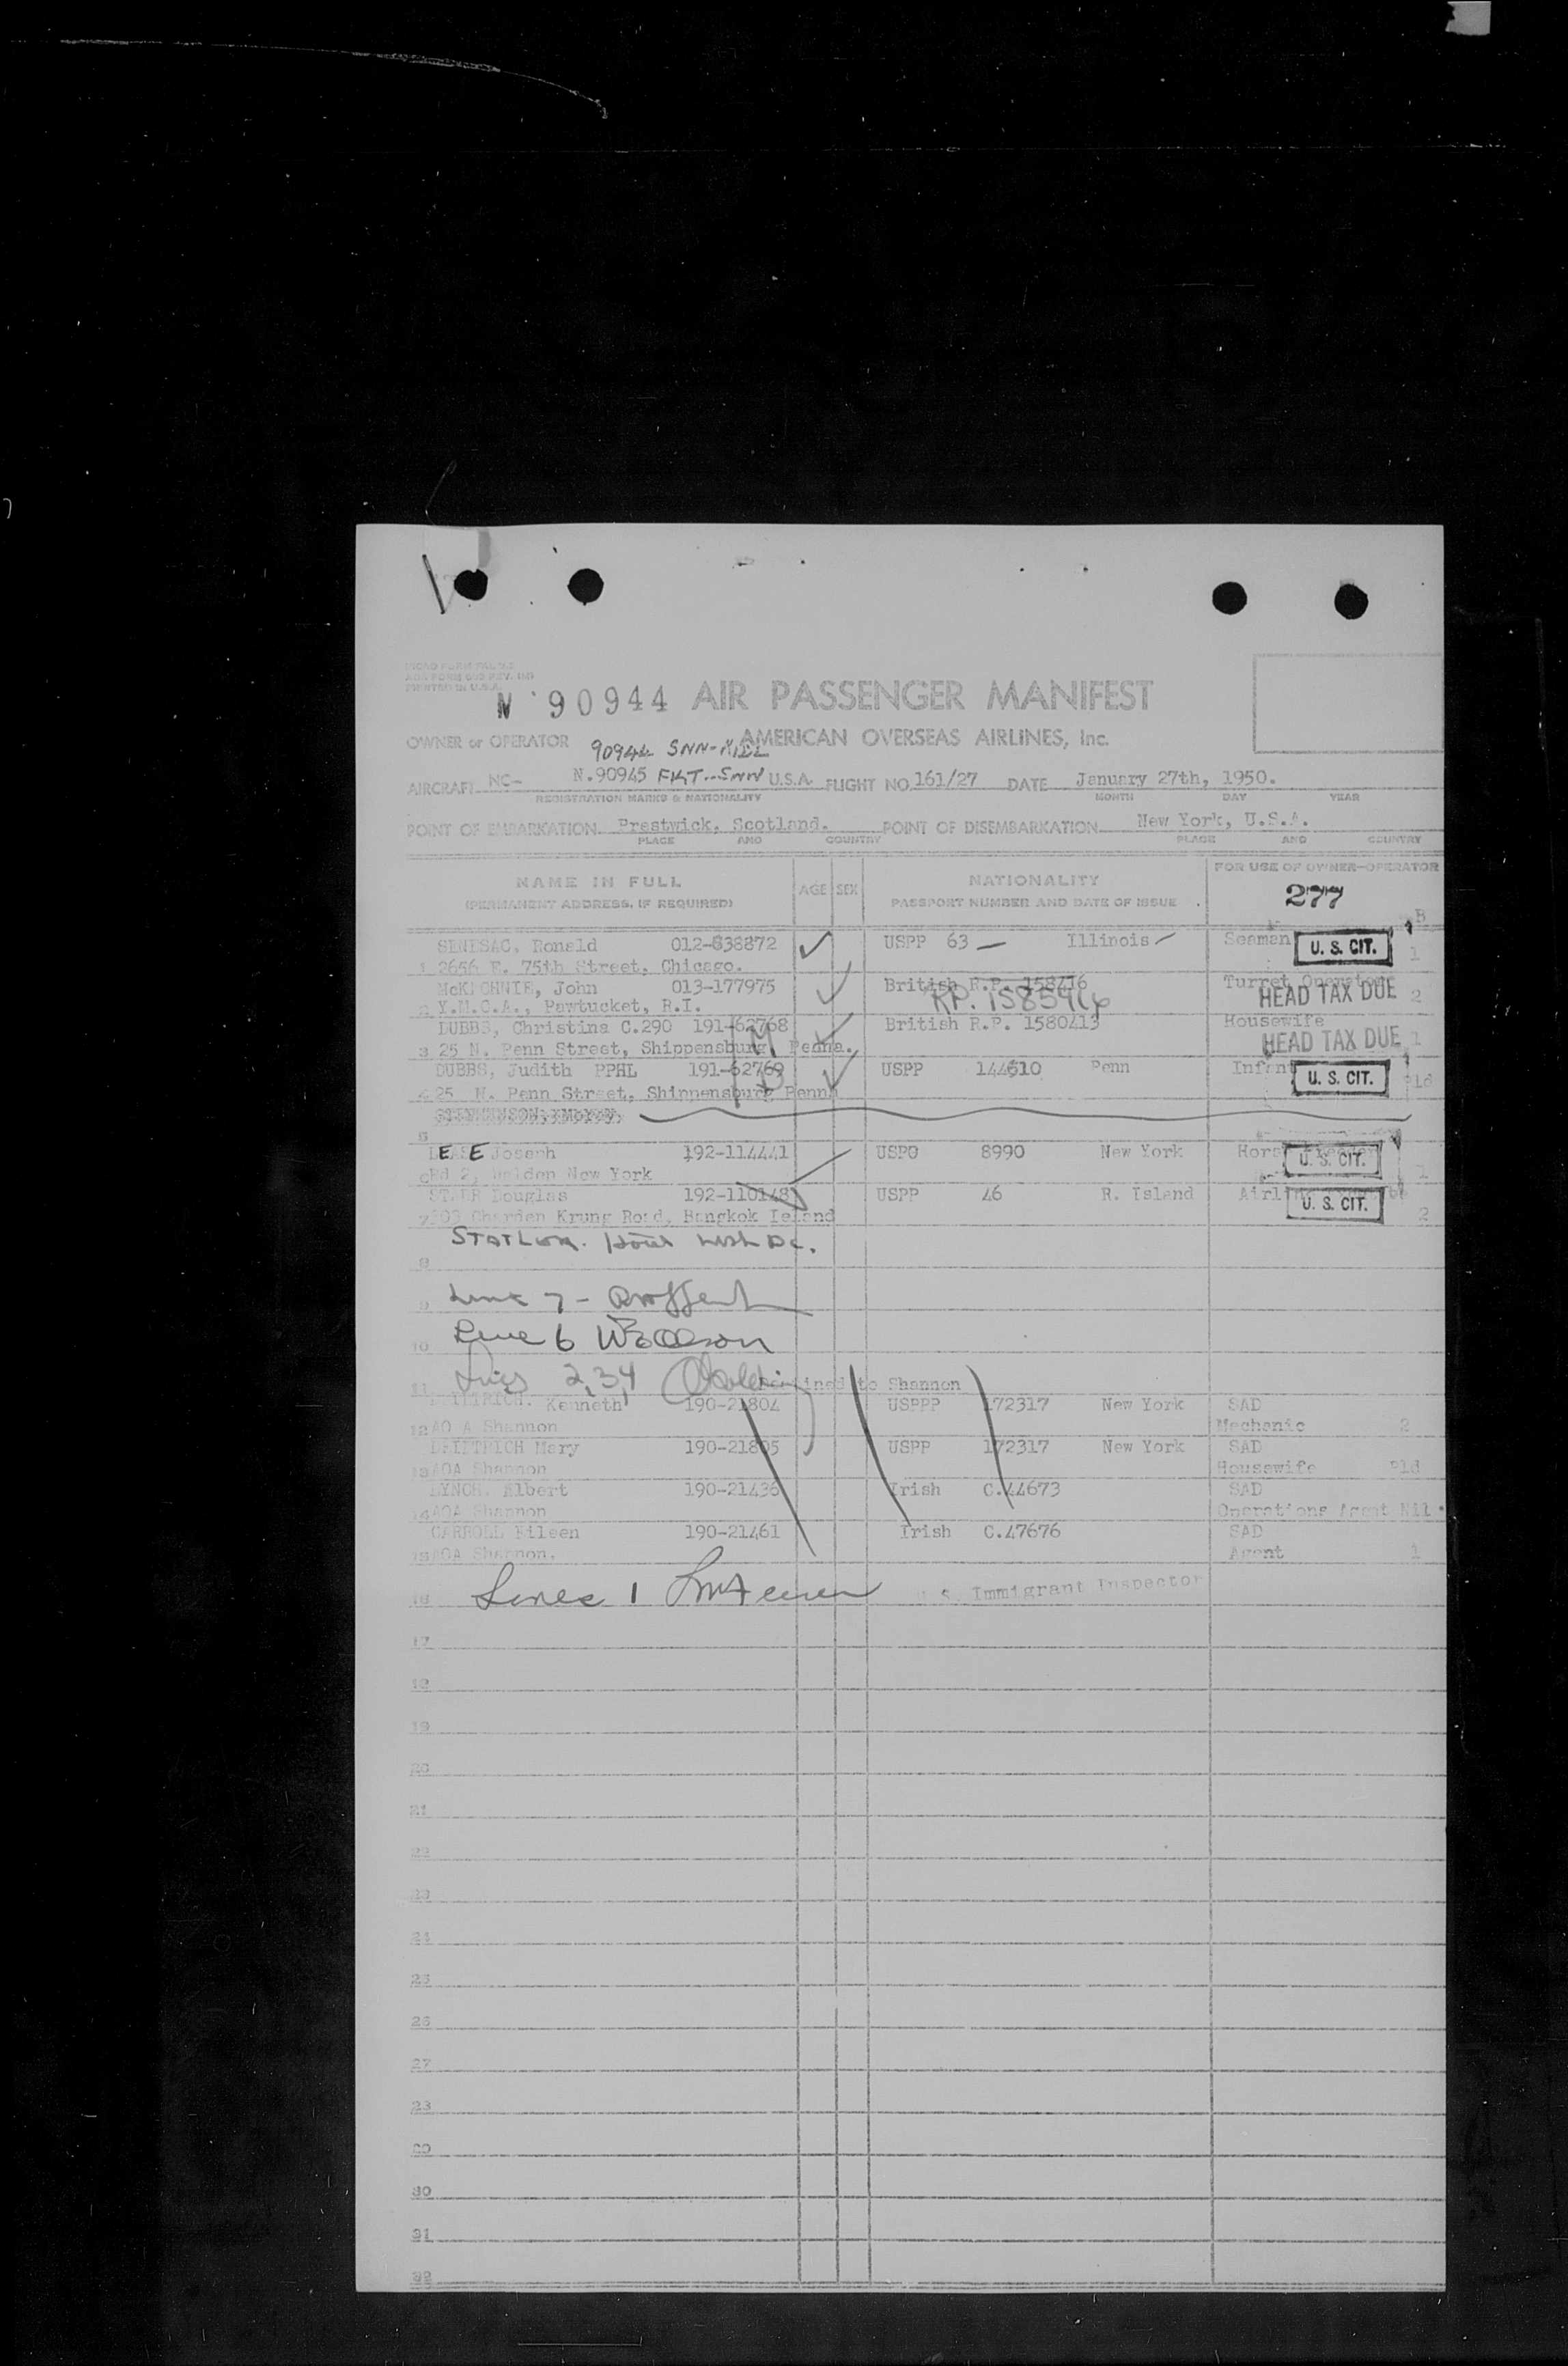 PRINTED IN U.S.A.
N 90944 AIR PASSENGER MANIFEST
OWNER or OPERATOR AMERICAN OVERSEAS AIRLINES, Inc.
90944 SNN-
AIRCRAFT NC- N.90945 FKT.-SNN U.S.A. FLIGHT NO. 161/27 DATE January 27th, 1950.
REGISTRATION MARKS & NATIONALITY MONTH DAY YEAR
POINT OF EMBARKATION Prestwick, Scotland. POINT OF DISEMBARKATION New York, U.S.A.
PLACE AND COUNTRY PLACE AND COUNTRY
NAME IN FULL AGE SEX NATIONALITY FOR USE OF OWNER-OPERATOR
(PERMANENT ADDRESS, IF REQUIRED) PASSPORT NUMBER AND DATE OF ISSUE 277
B
SENESAC, Ronald 012-838872 USPP 63 Illinois Seaman U. S. CIT. 1
1 2656 E. 75th Street, Chicago.
McKECHNIE, John 013-177975 British R.P. 158416 Turret Operator
2 Y.M.C.A., Pawtucket, R.I. RP. 1585416 HEAD TAX DUE 2
DUBBS, Christina C.290 191-62768 British R.P. 1580413 Housewife
3 25 N. Penn Street, Shippensburg Penna. HEAD TAX DUE 1
DUBBS, Judith PPHL 191-62769 USPP 144610 Penn Infant U. S. CIT.
4 25 N. Penn Street, Shippensburg Penna
5
LEASE Joseph 192-114441 USPO 8990 New York U. S. CIT.
6 Rd 2, Walden New York 1
Douglas 192-110148 USPP 46 R. Island U. S. CIT.
7 Charden Krung Road, Bangkok 2
8
9 Line 7 -
10 Line 6
11 Lines 2,3,4 to Shannon
Kenneth 190-21804 USPPP 172317 New York SAD
12 AOA Shannon Mechanic 2
DEITTRICH Mary 190-21805 USPP 172317 New York SAD
13 AOA Shannon Housewife
LYNCH. Albert 190-21436 Irish C.44673 SAD
14 AOA Shannon Operations Agent Nil
CARROLL Eileen 190-21461 Irish C.47676 SAD
15 AOA Shannon. Agent 1
16 Lines 1 U.S. Immigrant Inspector
17
18
19
20
21
22
23
24
25
26
27
28
29
30
31
32